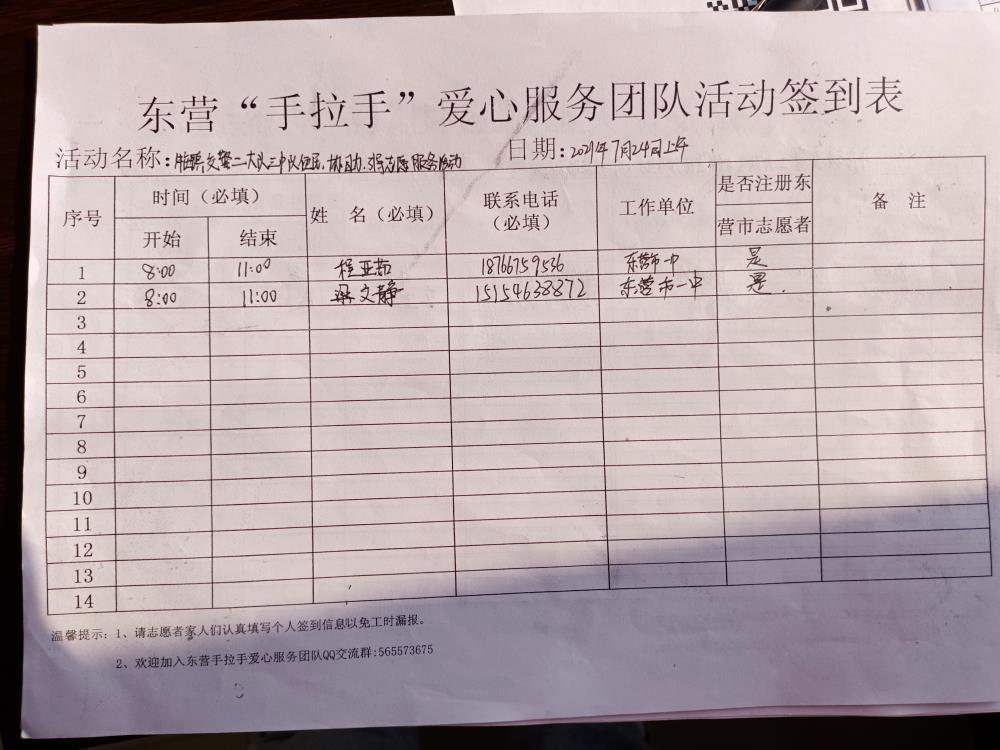 东营“手拉手”爱心服务团队活动签到表
活动名称: 交警二大队三中队 协助 志愿服务活动 日期: 2021年7月24日上午
序号 时间（必填） 姓 名（必填） 联系电话（必填） 工作单位 是否注册东营市志愿者 备 注
开始 结束
1 8:00 11:00 程亚茹 18766759536 东营市一中 是
2 8:00 11:00 梁文静 15154638872 东营市一中 是.
3
4
5
6
7
8
9
10
11
12
13
14
温馨提示: 1、请志愿者家人们认真填写个人签到信息以免工时漏报。
2、欢迎加入东营手拉手爱心服务团队QQ交流群:565573675